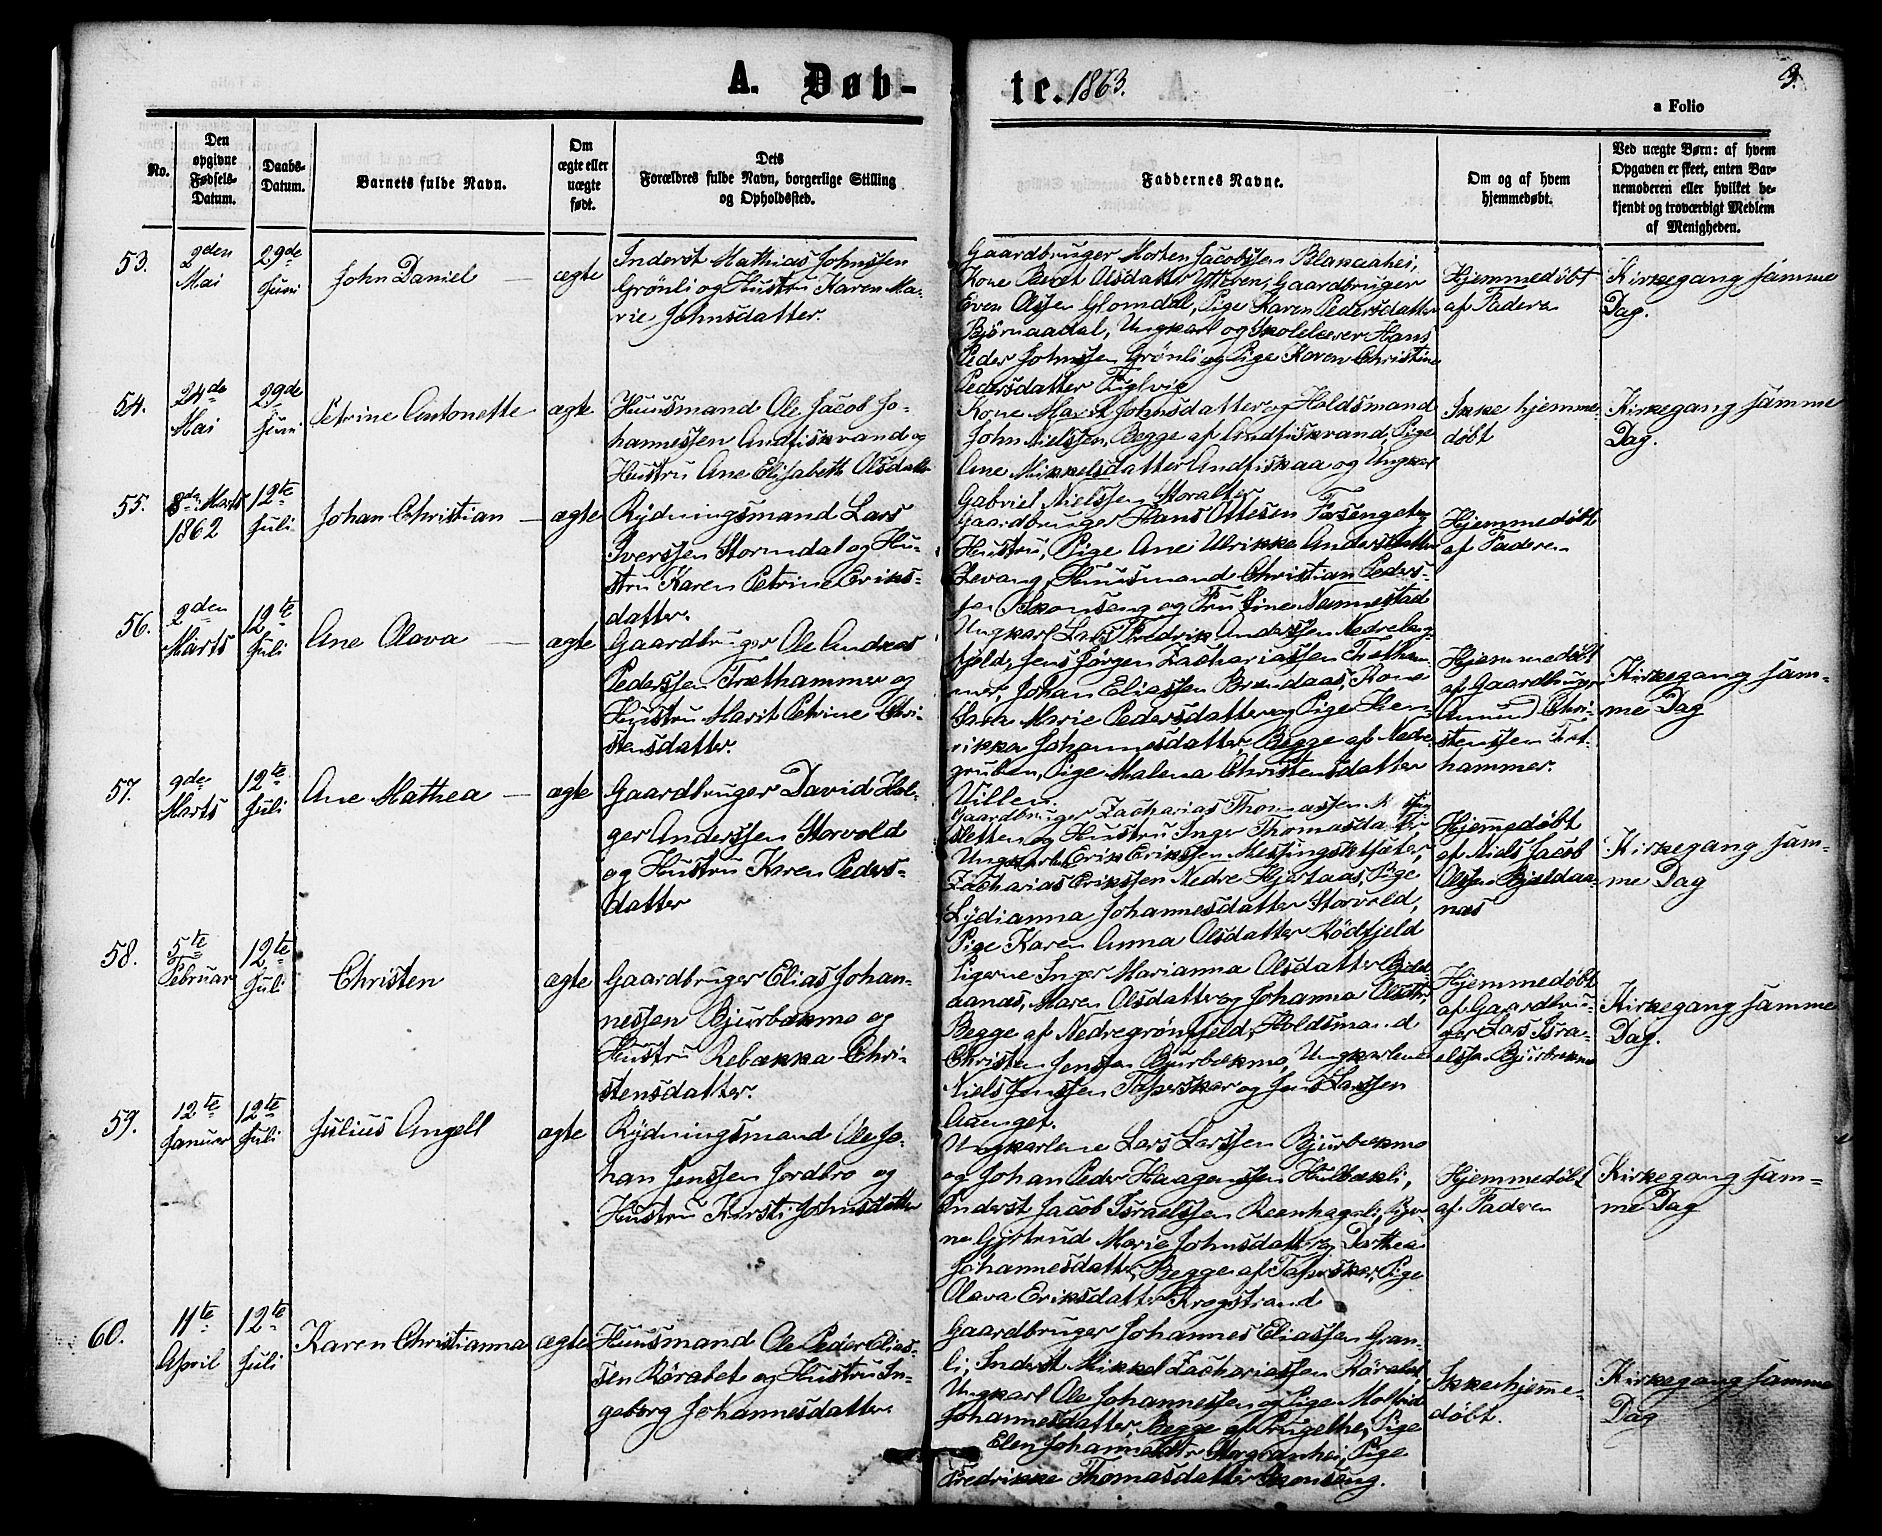 A. Døb-
te. 1863.
3.
a Folio
No.
Den
opgivne
Fødsels-
Datum.
Daabs-
Datum.
Barnets fulde Navn.
Om
ægte eller
uægte
født.
Dets
Forældres fulde Navn, borgerlige Stilling
og Opholdssted.
Faddernes Navne.
Om og af hvem
hjemmedøbt.
Ved uægte Børn: af hvem
Opgaven er skeet, enten Bar-
nemoderen eller hvilket be-
kjendt og troværdigt Medlem
af Menigheden.
53.
2den
Mai
29de
Juni
John Daniel
ægte
Inderst Mathias Johnssen
Grönli og Hustru Karen Ma-
rie Johnsdatter.
Gaardbruger Morten Jacobssen Blakaahei,
Kone Beret Olsdatter Ytteren, Gaardbruger
Even Olssen Glomdal, Pige Karen Pedersdatter
Björnaadal, Ungkarl og Skolelærer Hans
Peder Johnssen Grönli og Pige Karen Christine
Pedersdatter Fuglvig
Hjemmedøbt
af Faderen
Kirkegang samme
Dag.
54.
24de
Mai
29de
Juni
Petrine Antonette
ægte
Huusmand Ole Jacob Jo-
hannessen Andfiskvand og
Hustru Ane Elisabeth Olsdatter
Kone Marit Johnsdatter og Holdsmand
John Nielssen, Begge af Andfiskvand, Pige
Ane Mikkelsdatter Andfiskaa og Ungkarl
Gabriel Nielssen Storalter
Ikke hjemme-
døbt
Kirkegang samme
Dag.
55.
8de Marts
1862
12te
Juli
Johan Christian
ægte
Rydningsmand Lars
Iverssen Stormdal og Hu-
stru Karen Petrine Eriks-
datter.
Gaardbruger Hans Ottesen Forsenget og
Hustru, Pige Ane Ulrikke Andersdatter
Levang, Huusmand Christian Peders-
sen Skonseng og Fru Sine Nannestad
Hjemmedøbt
af Faderen
56.
2den
Marts
12te
Juli
Ane Olava
ægte
Gaardbruger Ole Andreas
Pederssen Fræthammer og
Hustru Marit Petrine Chri-
stensdatter.
Ungkarl Lars Fredrik Anderssen Nedreleng-
fjeld, Jens Jörgen Zachariassen Frætham-
mer, Johan Eliassen Brændaas, Kone
Sara Marie Pedersdatter og Pige Hen-
rikka Johannesdatter, Begge af Nedre-
gruben, Pige Malena Christensdatter
Villen.
Hjemmedøbt
af Gaardbruger
Amund Chri-
stenssen Fræt-
hammer.
Kirkegang sam-
me Dag
57.
9de
Marts
12te
Juli
Ane Mathea
ægte
Gaardbruger David Hol-
ger Anderssen Storvold
og Hustru Karen Peders-
datter
Gaardbruger Zacharias Thomassen
sletten og Hustru Inger Thomasdatter,
Ungkarl Erik Erikssen Messingsletsæter,
Zacharias Erikssen Nedre Hjertaas, Pige
Lydianna Johannesdatter Storvold,
Pige Karen Anna Olsdatter Rödfjeld
Hjemmedøbt
af Niels Jacob
Olssen Bjeldaa-
næs
Kirkegang sam-
me Dag
58.
5te
Februar
12te
Juli
Christen
ægte
Gaardbruger Elias Johan-
nessen Bjurbekmo og
Hustru Rebækka Chri-
stensdatter.
Pigerne Inger Marianna Olsdatter Bjeld-
aanæs, Maren Olsdatter og Johanna Olsdtr,
Begge af Nedregrönfjeld, Holdsmand
Christen Jenssen Bjurbekmo, Ungkarlene
Niels Jenssen Tapeskar og Jens Larssen
Aaenget.
Hjemmedøbt
af Gaardbru-
ger Lars Isra-
elssen Bjurbekmo
Kirkegang samme
Dag.
59.
12te
Januar
12te
Juli
Julius Angell
ægte
Rydningsmand Ole Jo-
han Jenssen Jordbro og
Hustru Kirsti Johnsdatter
Ungkarlene Lars Larssen Bjurbekmo
og Johan Peder Haagenssen Hulbækli,
Inderst Jacob Israelssen Reenhagsli, Piger-
ne Gjertrud Marie Johnsdatter og Dorthea
Johannesdatter, Begge af Tapeskar, Pige
Olava Eriksdatter Krogstrand
Hjemmedøbt
af Faderen
Kirkegang sam-
me Dag
60.
11te
April
12te
Juli
Karen Christianna
ægte
Huusmand Ole Peder Elias-
sen Rörabet og Hustru In-
geborg Johannesdatter.
Gaardbruger Johannes Eliassen Gran-
li, Inderst Mikkel Zachariassen Rörabet,
Ungkarl Ole Johannessen og Pige Malfrid
Johannesdatter, Begge af Prugelhei, Pige
Elen Johannesdtr Storgranhei, Pige
Fredrikke Thomasdatter Skonseng.
Ikke hjemme-
døbt.
Kirkegang samme
Dag